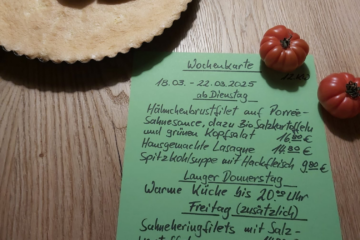 Wochenkarte
18.03. - 22.03.2025
ab Dienstag
Hähnchenbrustfilet auf Porree-
Sahnesauce, dazu Bio Salzkartoffeln
und grünen Kopfsalat 16.00 €
Hausgemachte Lasagne 14.00 €
Spitzkohlsuppe mit Hackfleisch 9.80 €
Langer Donnerstag
Warme Küche bis 20.00 Uhr
Freitag (zusätzlich)
Sahneheringfilets mit Salz-